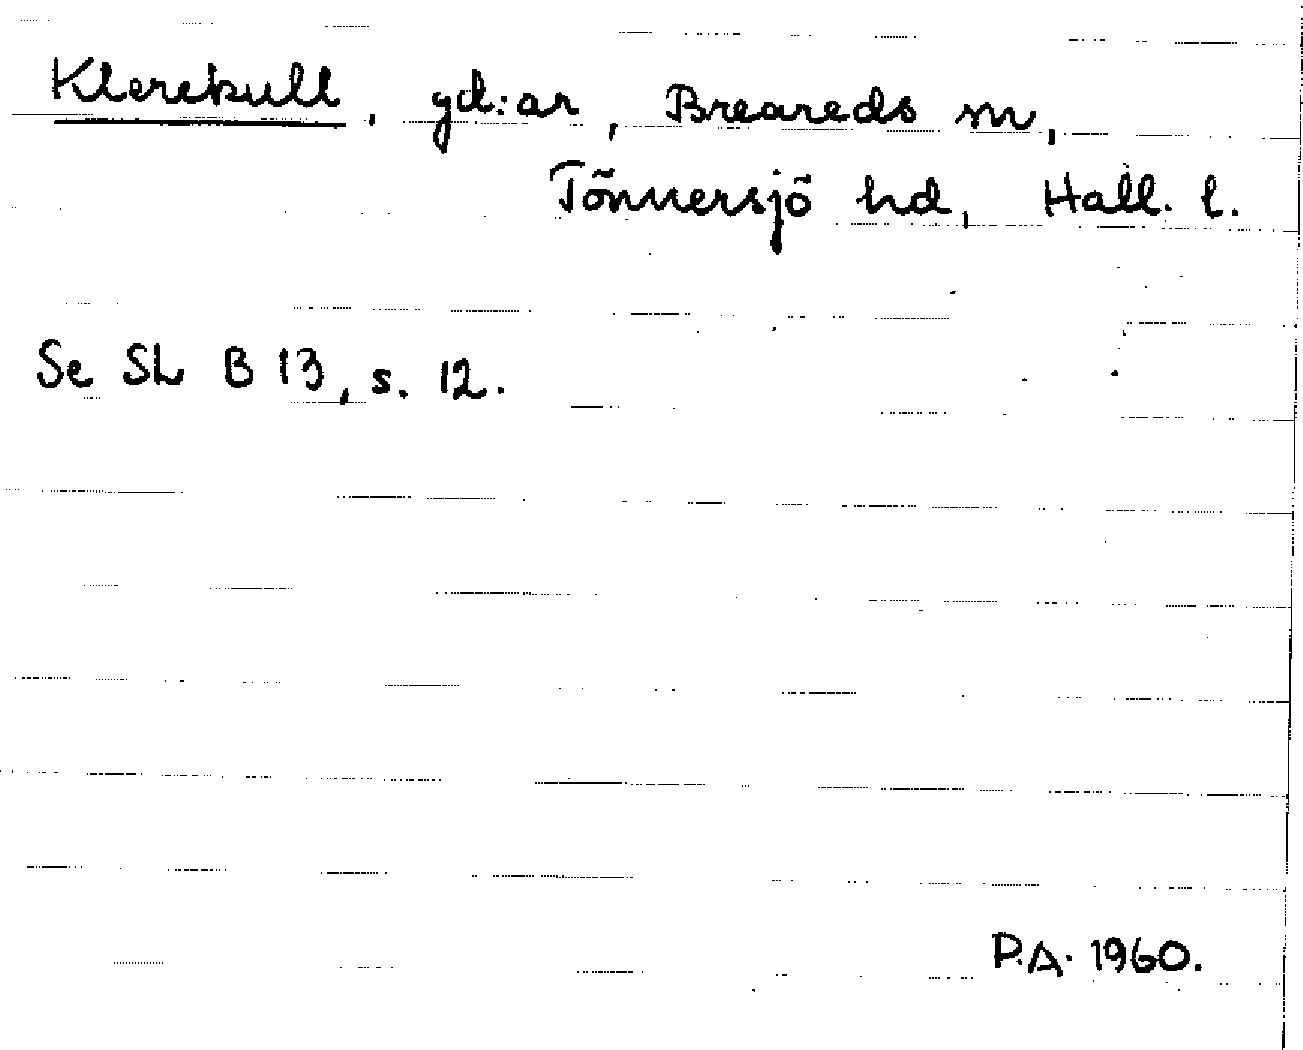 Klerekull, gd:ar, Breareds sn,
Tönnersjö hd, Hall. l.
Se SL B 13, s. 12.
P.A. 1960.